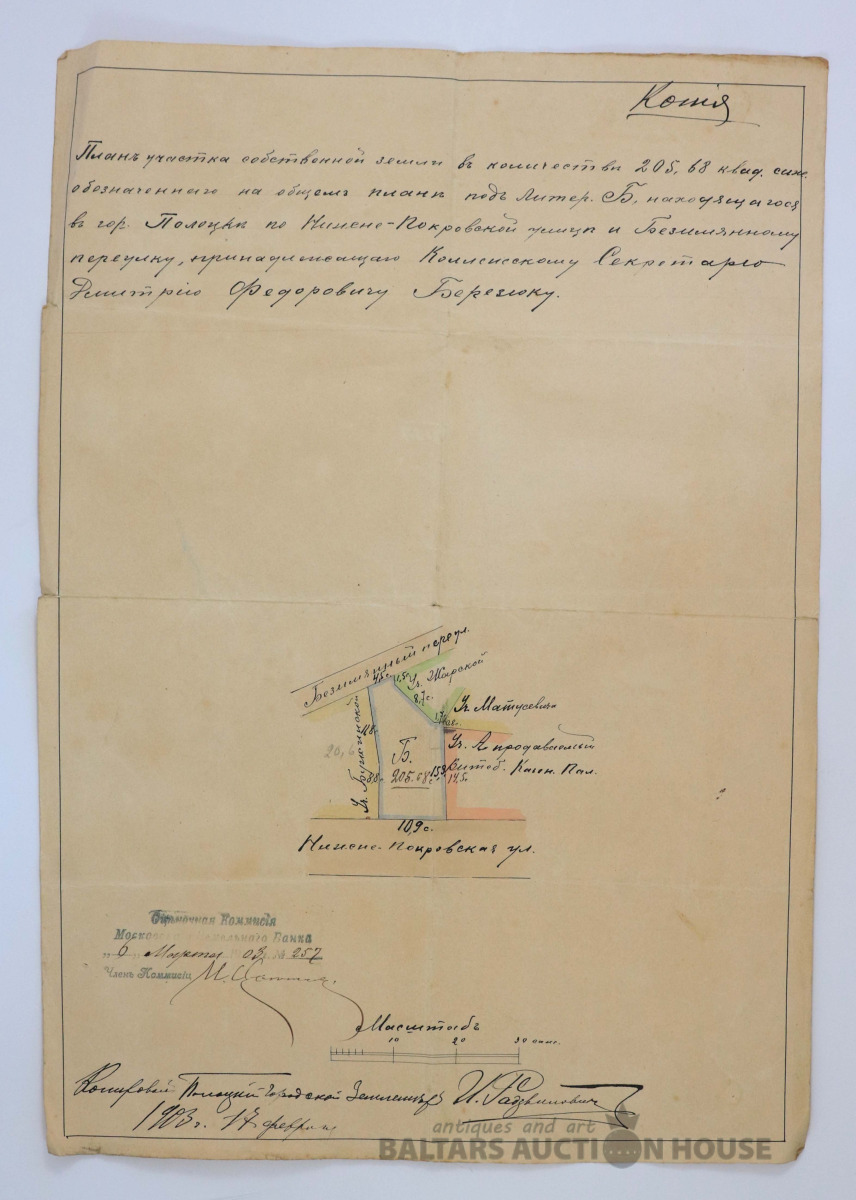 Копія
Планъ участка собственной земли въ количествѣ 205,68 квад. саж.
обозначеннаго на общемъ планѣ подъ Литер. Б, находящагося
въ гор. Полоцкѣ по Нижне-Покровской улицѣ и Безимянному
переулку, принадлежащаго Коллежскому Секретарю
Дмитрію Федоровичу Березюку.
Безимянный переул.
4,5 с.
1,5
Уч. Жарской
8,7 с.
Уч. Матусевича
11,8
Уч. А продаваемый
20,6
Б.
205.68
15,9
Витеб. Казен. Пал.
14,5
8,8
10,9 с.
Нижне-Покровская ул.
Оцѣночная Коммисія
Московскаго Земельнаго Банка
„6 Марта 03 № 257
Членъ Коммисіи
Масштабъ
10 20 30 саж.
Копировалъ Полоцкій Городской Землемѣръ
1903 г. 17 февраля
antiques and art
BALTARS AUCTION HOUSE